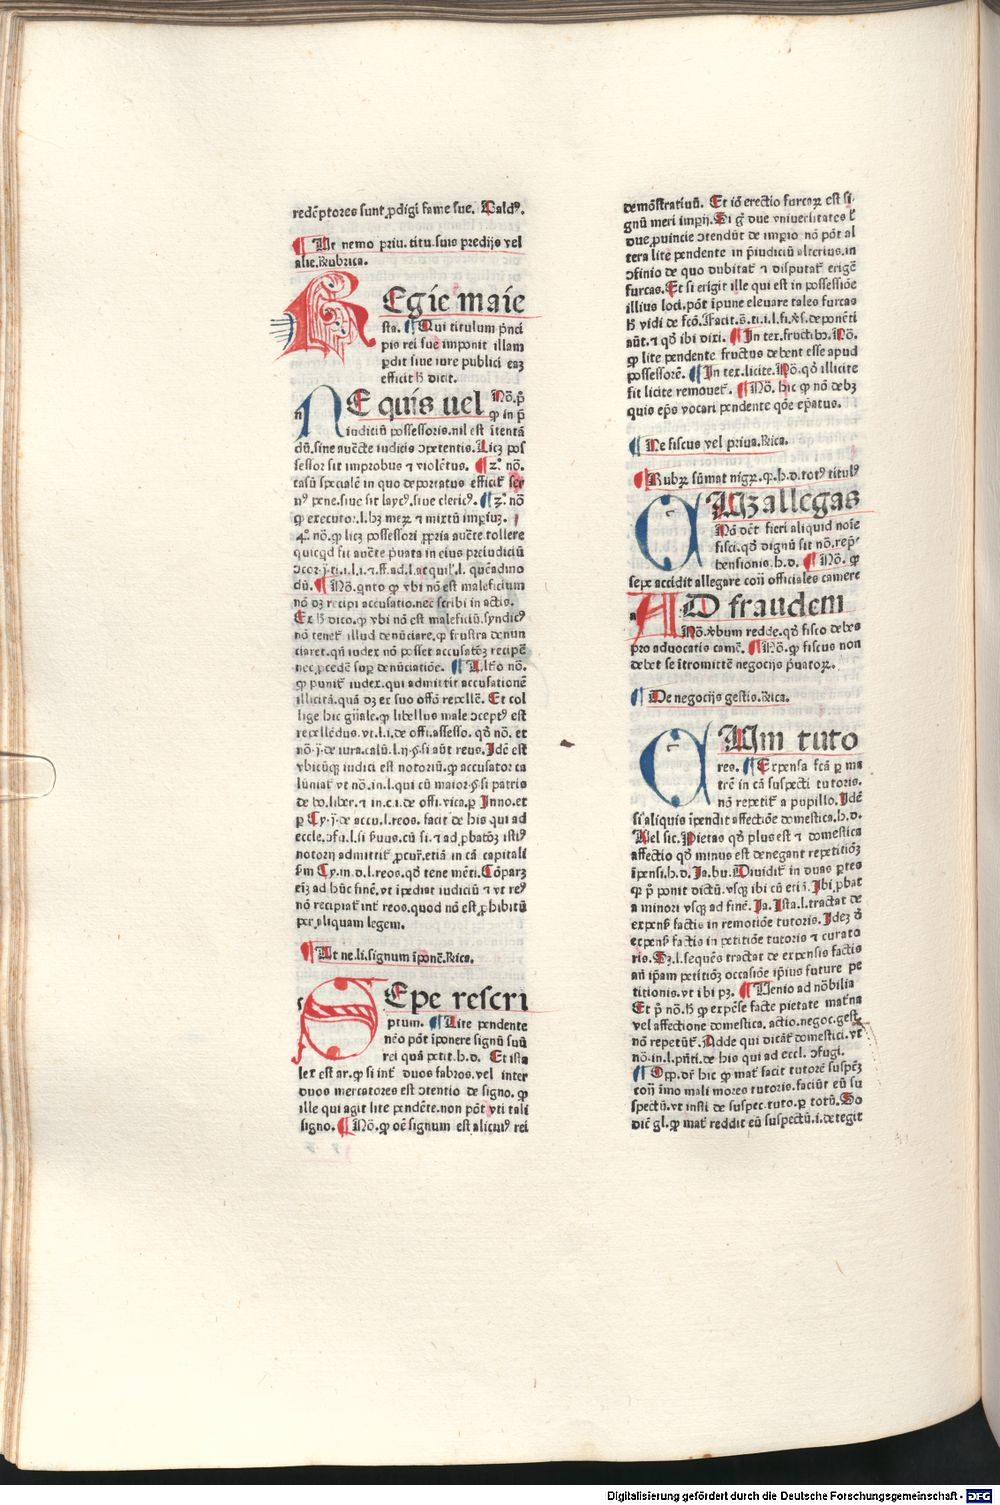 redēptores sunt ꝓdigi fame sue. Baldꝰ.
¶ Ut nemo priu. titu. suis predijs vel
alie. Rubrica.
REgie maie
sta. ¶ Qui titulum pͥnci
pis rei sue imponit illam
ꝑdit siue iure publici eaꝫ
efficit ħ dicit.
NE quis uel Nō. ꝙ
ꝙ in p̄
iudiciū possessoris. nil est ītentā
dū. sine auctͤte iudicis ꝯpetentis. Licꝫ pos
sessor sit improbus ⁊ violētus. ¶ 2ͦ. nō.
casū specialē in quo deportatus efficit̄ ser
nꝰ pene. siue sit laycꝰ. siue clericꝰ. ¶ 3ͦ. nō
ꝙ executor. l. hꝫ meꝝ ⁊ mixtū imperiuꝫ.
4ͦ. nō. ꝙ licꝫ possessori ꝓpria auctͤte tollere
quicqd sit auctͤte pͥuata in eius preiudiciū
dū. ¶ Nō. qnto ꝙ vbi nō est maleficium
nō dꝫ recipi accusatio. nec scribi in actis.
Ex ħ dico. ꝙ vbi nō est maleficiū. syndicꝰ
nō tenet̄ illud denūciare. ꝙ frustra denun
ciaret. qn̄ iudex nō posset accusatōeꝫ recipē
nec ꝓcedē suꝑ denūciatiōe. ¶ Ult̄o nō.
ꝙ punit̄ iudex. qui admittit accusationē
illicitā. quā dꝫ ex suo offō repellē. Et col
lige hic gn̄ale. ꝙ libellus male ꝯceptꝰ est
repellēdus. vt. l. i. de offi. assesso. qō nō. et
nō. j. de iura. calū. l. ij. §. si aūt reus. Idē est
vbicūqꝫ iudici est notoriū. ꝙ accusator ca
luniat̄ vt nō. in. l. qui cū maior. §. si patris
de bo. liber. ⁊ in. c. i. de offi. vica. ꝑ Inno. et
ꝑ Cy. j. de accu. l. reos. facit de his qui ad
eccle. ꝯfu. l. si ẜuus. cū si. ⁊ ad ꝓbatōeꝫ istiꝰ
notorij admittit̄ ꝓcur̄. etiā in cā capitali
ẜm Cy. in d. l. reos. qō tene mēti. Cōparꝫ
eī ad hūc finē. vt īpediat iudiciū ⁊ vt reꝰ
nō recipiat̄ int̄ reos. quod nō est ꝓhibitū
per aliquam legem.
¶ Ut ne. li. signum īponē. Rica.
SEpe rescri
ptum. ¶ Lite pendente
nēo pōt īponere signū suū
rei quā petit. h. d. Et ista
lex est ar. ꝙ si int̄ duos fabros. vel inter
duos mercatores est ꝯtentio de signo. ꝙ
ille qui agit lite pendēte. non pōt vti tali
signo. ¶ Nō. ꝙ oē signum est alicuiꝰ rei
demōstratiuū. Et iō erectio furcaꝝ est si
gnū meri imperij. Si ḡ due vniuersitates ł
due ꝓuincie ꝯtendūt de imperio nō pōt al
tera lite pendente in p̄iudiciū alterius. in
ꝯfinio de quo dubitat̄ ⁊ disputat̄ erigē
furcas. Et si erigit ille qui est in possessiōe
illius loci. pōt īpune eleuare tales furcas
ħ vidi de fcō. Facit. s. ti. i. l. fi. §. de ponēti
aūt. ⁊ qō ibi dixi. ¶ In tex. fructibꝰ. Nō.
ꝙ lite pendente fructus debent esse apud
possessorē. ¶ In tex. licite. Nō. qō illicite
fit licite remouet̄. ¶ Nō. hic ꝙ nō debꝫ
quis ep̄s vocari pendente qōe ep̄atus.
¶ Ne fiscus vel priua. Rica.
¶ Rubꝝ sūmat nigꝝ. ꝙ. h. d. totꝰ titulꝰ
CUꝫ allegas
Nō dēt fieri aliquid noīe
fisci. qō dignū sit nō. rep̄
hensionis. h. d. ¶ Nō. ꝙ
sepe accidit allegare cori officiales camere
AD fraudem
Nō. v̄bum redde. qō fisco debes
pro aduocatis camē. ¶ Nō. ꝙ fiscus non
debet se ītromittē negocijs pͥuatoꝝ.
¶ De negocijs gestis. Rica.
CUm tuto
res. ¶ Expensa fcā ꝑ ma
trē in cā suspecti tutoris.
nō repetit̄ a pupillo. Idē
si aliquis īpendit affectiōe domestica. h. d.
Uel sic. Pietas qō plus est ⁊ domestica
affectio qō minus est denegant repetitiōꝫ
īpensi. h. d. Ja. bu. Diuidit̄ in duas ꝑtes
ꝙ pͥ ponit dictū. vsqꝫ ibi cū etiā. Ibi ꝓbat
a minori vsqꝫ ad finē. Ja. Ista. l. tractat de
expenẜ factis in remotiōe tutoris. Ideꝫ ō
expenẜ factis in petitiōe tutoris ⁊ curato
ris. Sꝫ. l. sequēs tractat de expensis factis
an̄ ip̄am petitiōꝫ occasiōe ipsius future pe
titionis. vt ibi pꝫ. ¶ Uenio ad nōbilia
Et pͥ nō. ħ ꝙ expēse facte pietate mat̄na
vel affectione domestica. actio. negoc. gest.
nō repetūt̄. Adde qui dicāt̄ domestici. vt
nō. in. l. pn̄ti. de his qui ad eccl. ꝯfugi.
¶ Opp. dr̄ hic ꝙ mat̄ facit tutorē suspēꝫ
cori īmo mali mores tutoris. faciūt eū su
spectū. vt insti de suspec. tuto. ꝑ totū. So
dic̄ gl. ꝙ mat̄ reddit eū suspectū. i. detegit
Digitalisierung gefördert durch die Deutsche Forschungsgemeinschaft - DFG